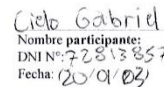 Cielo Gabriel
Nombre participante:
DNI Nº: 72813857
Fecha: (20/01/03)